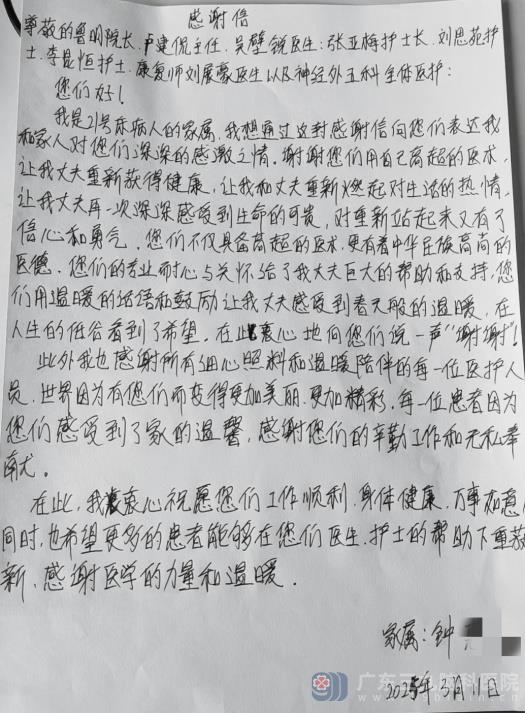 感谢信
尊敬的鲁明院长、卢建侃主任、吴壁锐医生、张亚梅护士长、刘思苑护
士、李昆恒护士、康复师刘展豪医生以及神经外五科全体医护：
您们好！
我是21号床病人的家属，我想通过这封感谢信向您们表达我
和家人对您们深深的感激之情。谢谢您们用自己高超的医术，
让我丈夫重新获得健康，让我和丈夫重新燃起对生活的热情，
让我丈夫再一次深深感受到生命的可贵，对重新站起来又有了
信心和勇气。您们不仅具备高超的医术，更有着中华民族高尚的
医德。您们的专业耐心与关怀给了我丈夫巨大的帮助和支持，您
们用温暖的话语和鼓励让我丈夫感受到春天般的温暖，在
人生的低谷看到了希望。在此衷心地向您们说一声“谢谢”！
此外我也感谢所有细心照料和温暖陪伴的每一位医护人
员，世界因为有您们而变得更加美丽、更加精彩。每一位患者因为
您们感受到了家的温馨，感谢您们的辛勤工作和无私奉
献。
在此，我衷心祝愿您们工作顺利、身体健康、万事如意，
同时，也希望更多的患者能够在您们医生、护士的帮助下重获
新，感谢医学的力量和温暖。
家属：钟
2025年3月11日
广东三九脑科医院